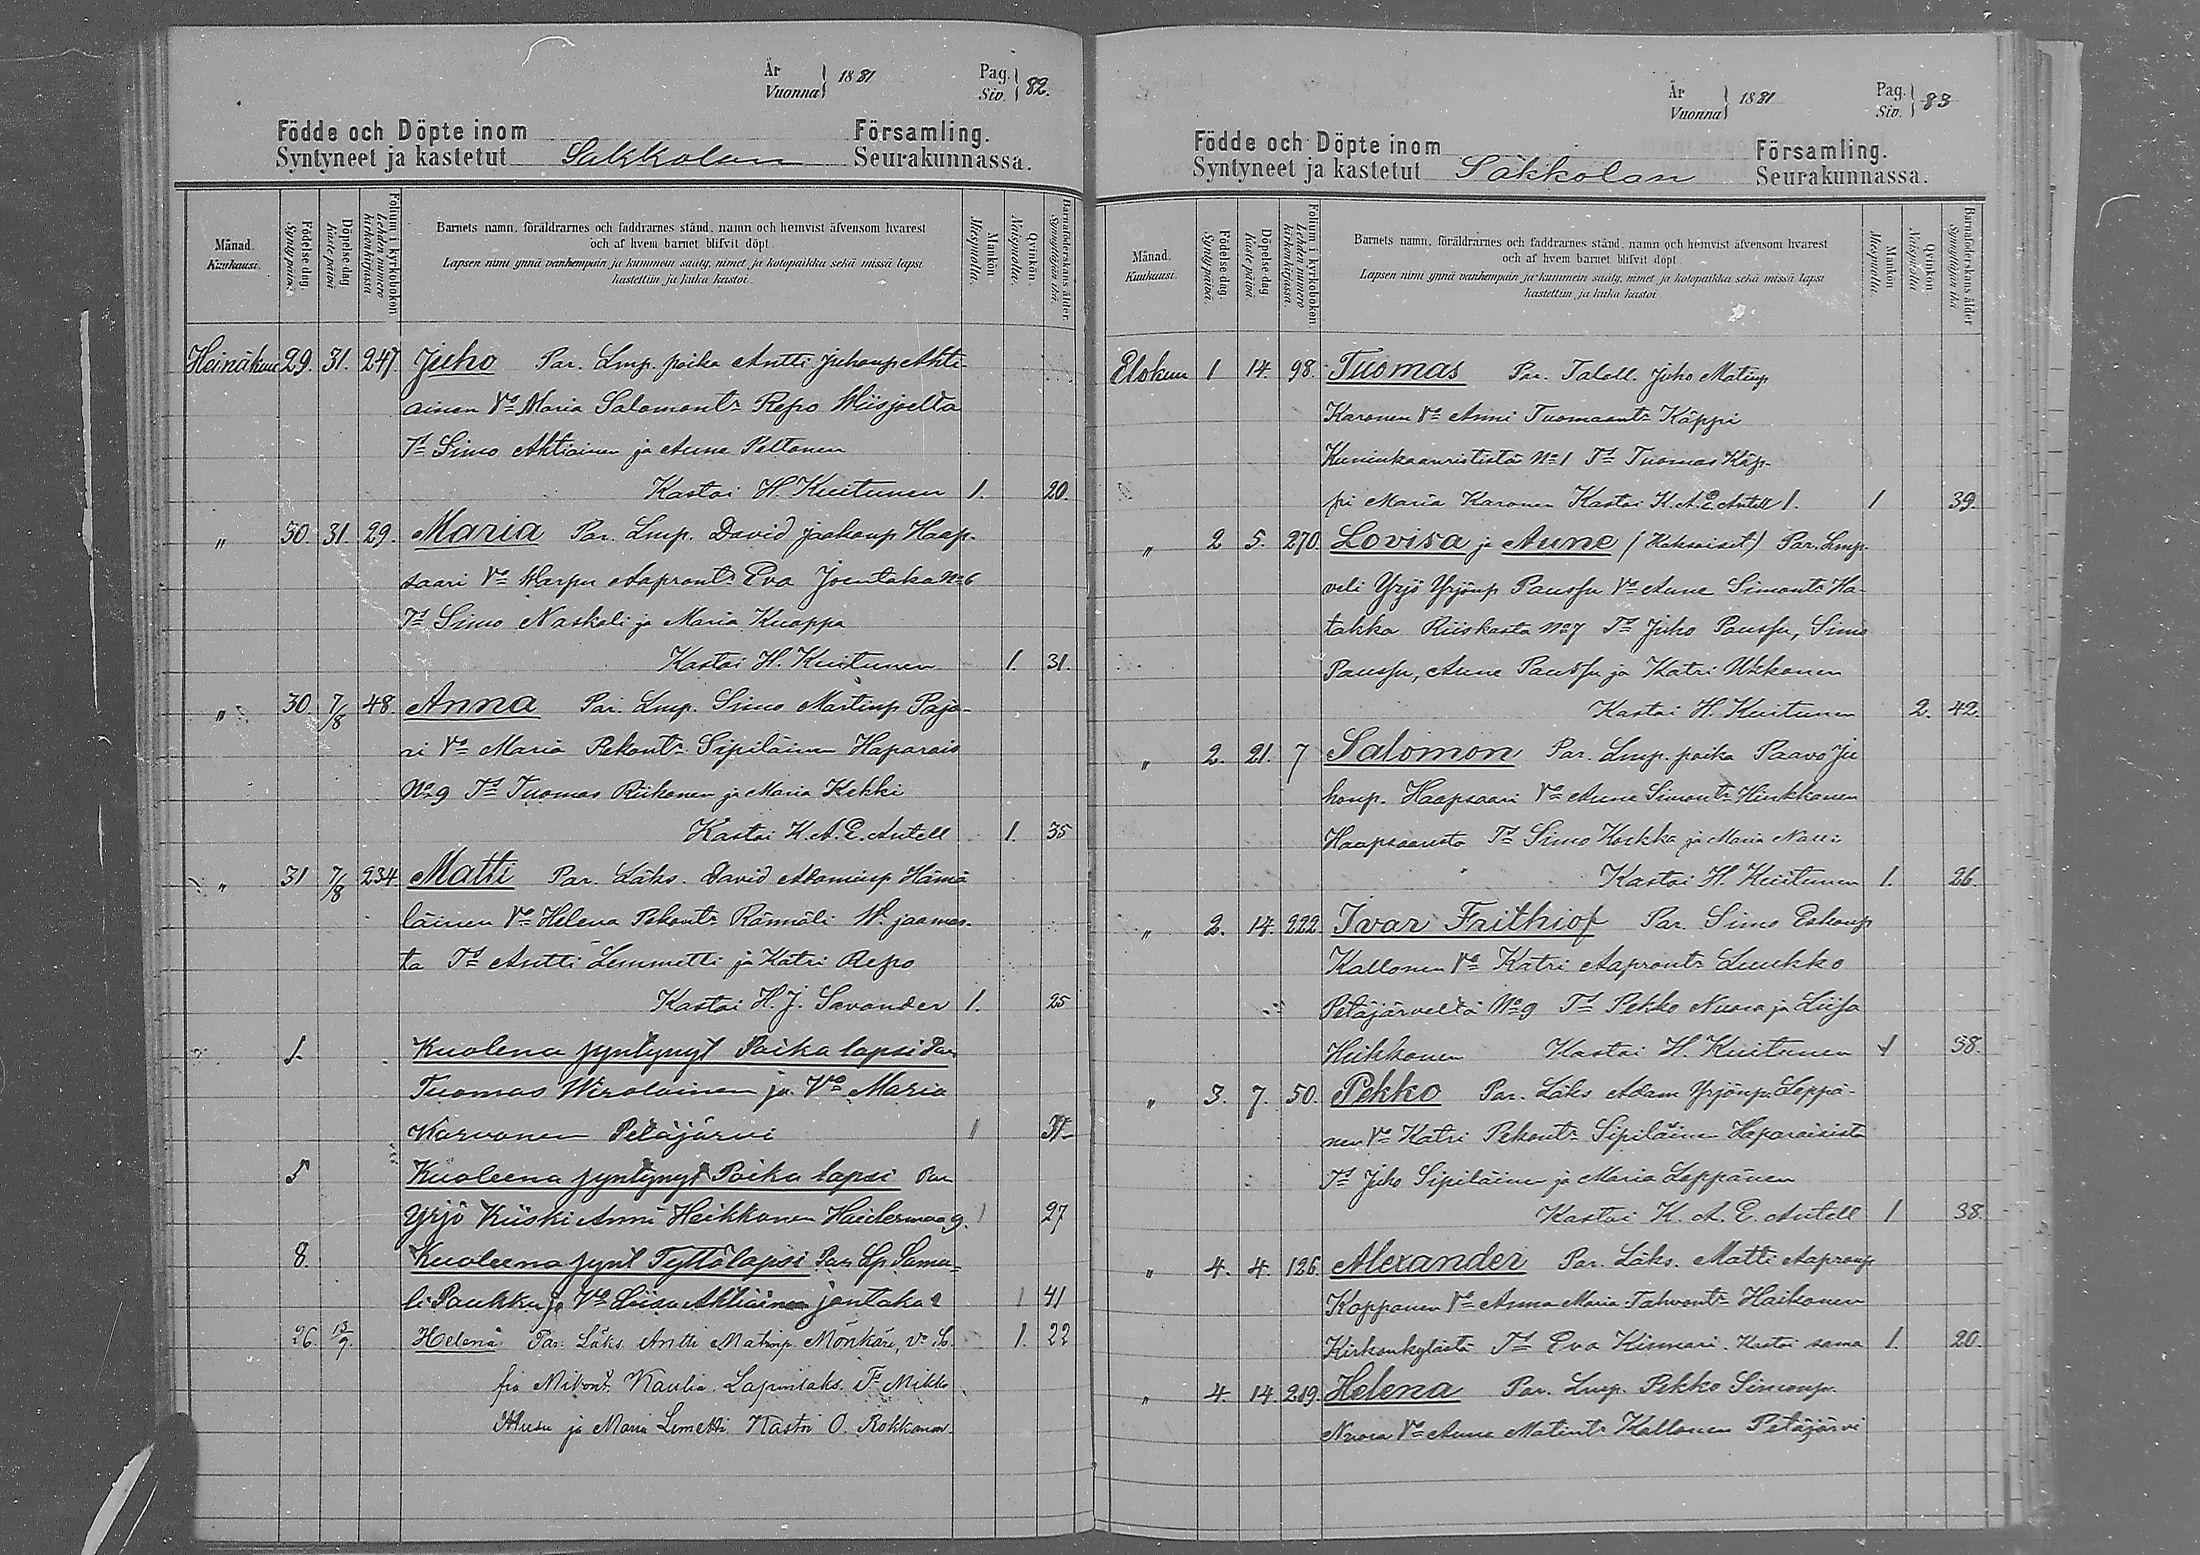 År
Vuonna } 1881
Pag.
Siv. } 82.
Födde och Döpte inom Församling.
Syntyneet ja kastetut Sakkolan Seurakunnassa.
Månad.
Kuukausi.
Födelsedag.
Syntypäivä.
Döpelsedag
Kastepäivä
Folium i kyrkoboken
Lehden numero kirkonkirjassa
Barnets namn, föräldrarnes och faddrarnes stånd, namn och hemvist äfvensom hvarest
och af hvem barnet blifvit döpt.
Lapsen nimi ynnä vanhempain ja kummein sääty, nimet ja kotopaikka sekä missä lapsi
kastettiin ja kuka kastoi.
Mankön.
Miespuolta.
Qvinkön.
Naispuolta.
Barnaföderskans ålder
Synnyttäjän ikä.
Heinäkuu 29. 31. 247. Juho Par. Lmp. poika Antti Juhonp Ahti-
ainen Vo Maria Salomontr Repo Wiisjoelta
Tt Simo Ahtiainen ja Anne Peltonen
Kastoi H. Kuitunen 1. 20.
" 30. 31. 29. Maria Par. Lmp. David Jaakonp Haap-
saari Vo Warpu Aaprontr Eva Joentaka No 6
Tt Simo Naskali ja Maria Knaappa
Kastoi H. Kuitunen 1. 31.
" 30. 7/8 48. Anna Par. Lmp. Simo Martinp Paja-
ri Vo Maria Pekontr Sipiläinen Haparais
No 9 Tt Tuomas Riikonen ja Maria Kekki
Kastoi K. A. E. Antell 1. 35
" 31 7/8 234. Matti Par. Läks. David Adaminp Hämä
läinen Vo Helena Pekontr Rännäli W. jaamas-
ta Tt Antti Lemmetti ja Katri Repo
Kastoi H. J. Savander 1. 25
1. Kuolena syntynyt Poika lapsi Par
Tuomas Wirolainen ja Vo Maria
Karvonen Petäjärvi 1
5 Kuoleena syntynyt Poika lapsi Par
Yrjö Kiiski Anni Heikkonen 9. 1 27
8. Kuoleena synt Tyttölapsi Par Lp Samu-
li Paukku ja Vo Liisa Ahtiainen jontaka 2 1 41
26. 13/9. Helena Par. Läks. Antti Matinp. Mönkäre, vo So-
fia Mikont. Kaulia. Tt Mikko
ja Maria Lemetti Kastoi O. Rokkanen.
År
Vuonna } 1881
Pag.
Siv. } 83
Födde och Döpte inom Församling.
Syntyneet ja kastetut Säkkolan Seurakunnassa.
Månad.
Kuukausi.
Födelsedag
Syntypäivä.
Döpelsedag
Kastepäivä.
Folium i kyrkoboken
Lehden numero kirkonkirjassa.
Barnets namn, föräldrarnes och faddrarnes stånd, namn och hemvist äfvensom hvarest
och af hvem barnet blifvit döpt.
Lapsen nimi ynnä vanhempain ja kummein sääty, nimet ja kotopaikka sekä missä lapsi
kastettiin ja kuka kastoi.
Mankön
Miespuolta.
Qvinkön
Naispuolta
Barnaföderskans ålder
Synnyttäjän ikä
Elokuu 1 14. 98. Tuomas Par. Taloll. Juho Matinp
Karonen Vo Anni Tuomaantr Käppi
Kuninkaanrististä No 1 Tt Tuomas Käp-
pi Maria Karonen Kastoi K. A. E. Antell 1. 1 39.
" 2 5. 270. Lovisa ja Aune (Kaksoiset) Par. Lmp.
veli Yrjö Yrjönp Paussu Vo Anne Simontr Ha-
takka Riiskasta No 7 Tt Juho Paussu, Simo
Paussu, Anne Paussu ja Katri Ukkonen
Kastoi H. Kuitunen 2. 42.
" 2. 21. 7 Salomon Par. Lmp. poika Paavo Ju
honp. Haapsaari Vo Anne Simontr Hinkkanen
Haapsaarista Tt Simo Koekka ja Maria Naari
Kastoi H. Kuitunen 1. 26.
" 2. 14. 222. Ivar Frithiof Par. Simo Eskonp
Kallonen Vo Katri Aaprontr Luukko
Petäjärveltä No 9 Tt Pekko Nuora ja Liisa
Heikkonen Kastoi H. Kuitunen 1 38.
" 3. 7. 50. Pekko Par. Läks Adam Yrjönp. Leppä-
nen Vo Katri Pekontr Sipiläinen Haparaisista
Tt Juho Sipiläinen ja Maria Leppänen
Kastoi K. A. E. Antell 1 38.
" 4. 4. 126. Alexander Par. Läks. Matti Aapronp
Kopponen Vo Anna Maria Tahvontr Haikonen
Kirkonkylästä Tt Eva Kinnari. Kastoi sama 1. 20.
" 4. 14. 219. Helena Par. Lmp. Pekko Simonp.
Nuora Vo Anne Matintr Kallonen Petäjärvi